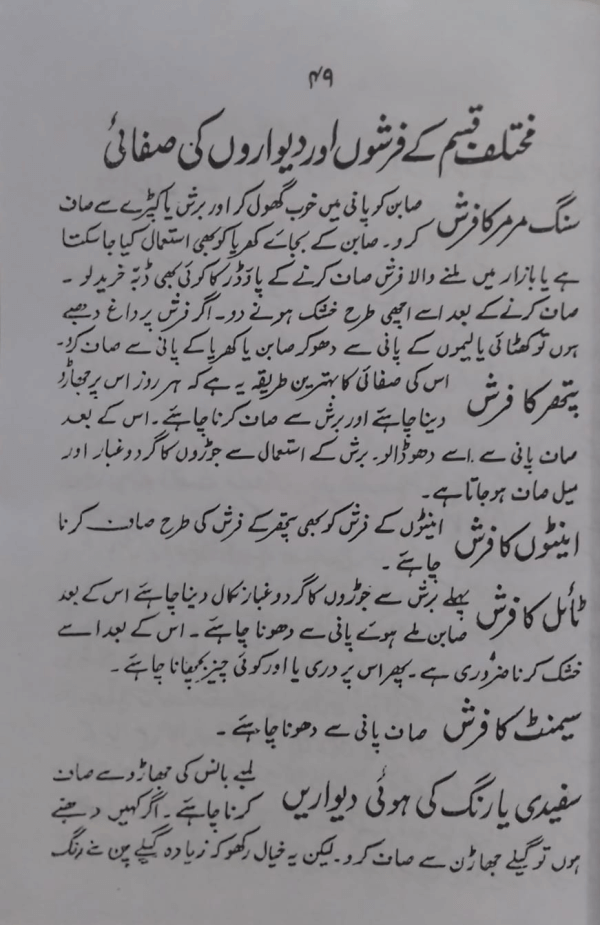 ۴۹
مختلف قسم کے فرشوں اور دیواروں کی صفائی
سنگ مرمر کا فرش صابن کو پانی میں خوب گھول کر اور برش یا کپڑے سے صاف
کرو۔ صابن کے بجائے کھریا کو بھی استعمال کیا جا سکتا
ہے یا بازار میں ملنے والا فرش صاف کرنے کے پاؤڈر کا کوئی بھی ڈبہ خرید لو۔
صاف کرنے کے بعد اسے اچھی طرح خشک ہونے دو۔ اگر فرش پر داغ دھبے
ہوں تو کھٹائی یا لیموں کے پانی سے دھو کر صابن یا کھریا کے پانی سے صاف کرو۔
پتھر کا فرش اس کی صفائی کا بہترین طریقہ یہ ہے کہ ہر روز اس پر جھاڑو
دینا چاہئے اور برش سے صاف کرنا چاہئے۔ اس کے بعد
صاف پانی سے اسے دھو ڈالو۔ برش کے استعمال سے جوڑوں کا گرد و غبار اور
میل صاف ہو جاتا ہے۔
اینٹوں کا فرش اینٹوں کے فرش کو بھی پتھر کے فرش کی طرح صاف کرنا
چاہئے۔
ٹائل کا فرش پہلے برش سے جوڑوں کا گرد و غبار نکال دینا چاہئے اس کے بعد
صابن ملے ہوئے پانی سے دھونا چاہئے۔ اس کے بعد اسے
خشک کرنا ضروری ہے۔ پھر اس پر دری یا اور کوئی چیز بچھانا چاہئے۔
سیمنٹ کا فرش صاف پانی سے دھونا چاہئے۔
سفیدی یا رنگ کی ہوئی دیواریں لمبے بانس کی جھاڑو سے صاف
کرنا چاہئے۔ اگر کہیں دھبے
ہوں تو گیلے جھاڑن سے صاف کرو۔ لیکن یہ خیال رکھو کہ زیادہ گیلے پن سے رنگ